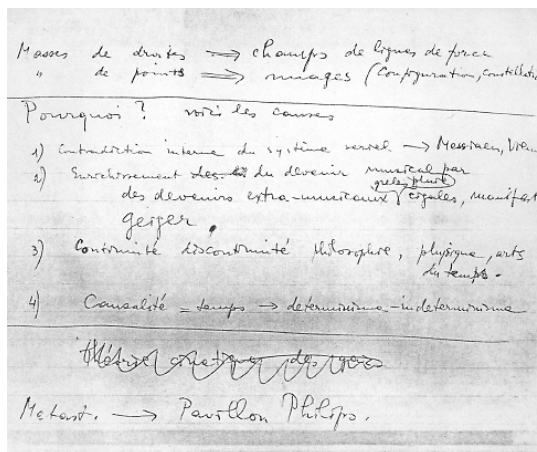 Masses de droites ⟹ champs de lignes de force
" de points ⟹ nuages (Configuration, constellati
Pourquoi? voici les causes
1) Contradiction interne du système seriel → Messiaen, Vien
2) Enrichissement du devenir musical par
grêle, pluie
des devenirs extra-musicaux, cigales, manifest
geiger,
3) Continuité discontinuité philosophie, physique, arts
du temps.
4) Causalité = temps → determinisme-indeterminisme
cinétique des gaz
Metast. → Pavillon Philips.